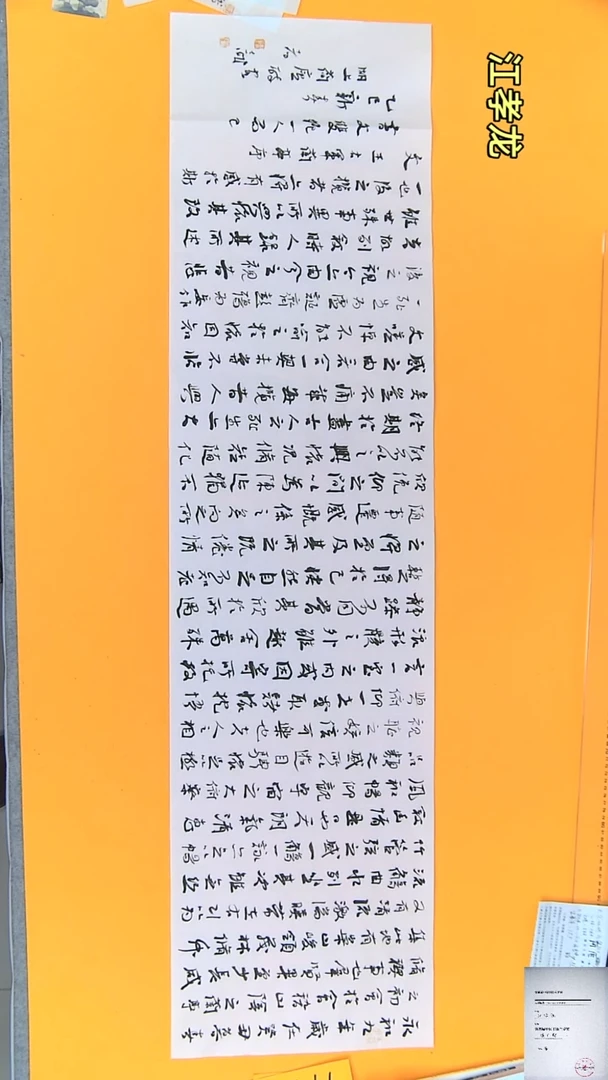 江孝龙
永和九年歲在癸丑暮春
之初會於會稽山陰之蘭亭
脩禊事也羣賢畢至少長咸
集此地有崇山峻領茂林脩竹
又有清流激湍暎帶左右引以為
流觴曲水列坐其次雖無絲
竹管弦之盛一觴一詠亦足以暢
敘幽情是日也天朗氣清惠
風和暢仰觀宇宙之大俯察
品類之盛所以遊目騁懷足以極
視聽之娛信可樂也夫人之相
與俯仰一世或取諸懷抱悟
言一室之內或因寄所託放
浪形骸之外雖趣舍萬殊
靜躁不同當其欣於所遇
暫得於己快然自足不知老
之將至及其所之既倦情
隨事遷感慨係之矣向之所
欣俛仰之間以為陳迹猶不
能不以之興懷況脩短隨化
終期於盡古人云死生亦大
矣豈不痛哉每攬昔人興
感之由若合一契未嘗不臨
文嗟悼不能喻之於懷固知
一死生為虛誕齊彭殤為妄作
後之視今亦由今之視昔悲
夫故列敘時人錄其所述
雖世殊事異所以興懷其致
一也後之攬者亦將有感於斯
文
王右軍蘭亭序
書文雙絕一人而已
乙巳新春